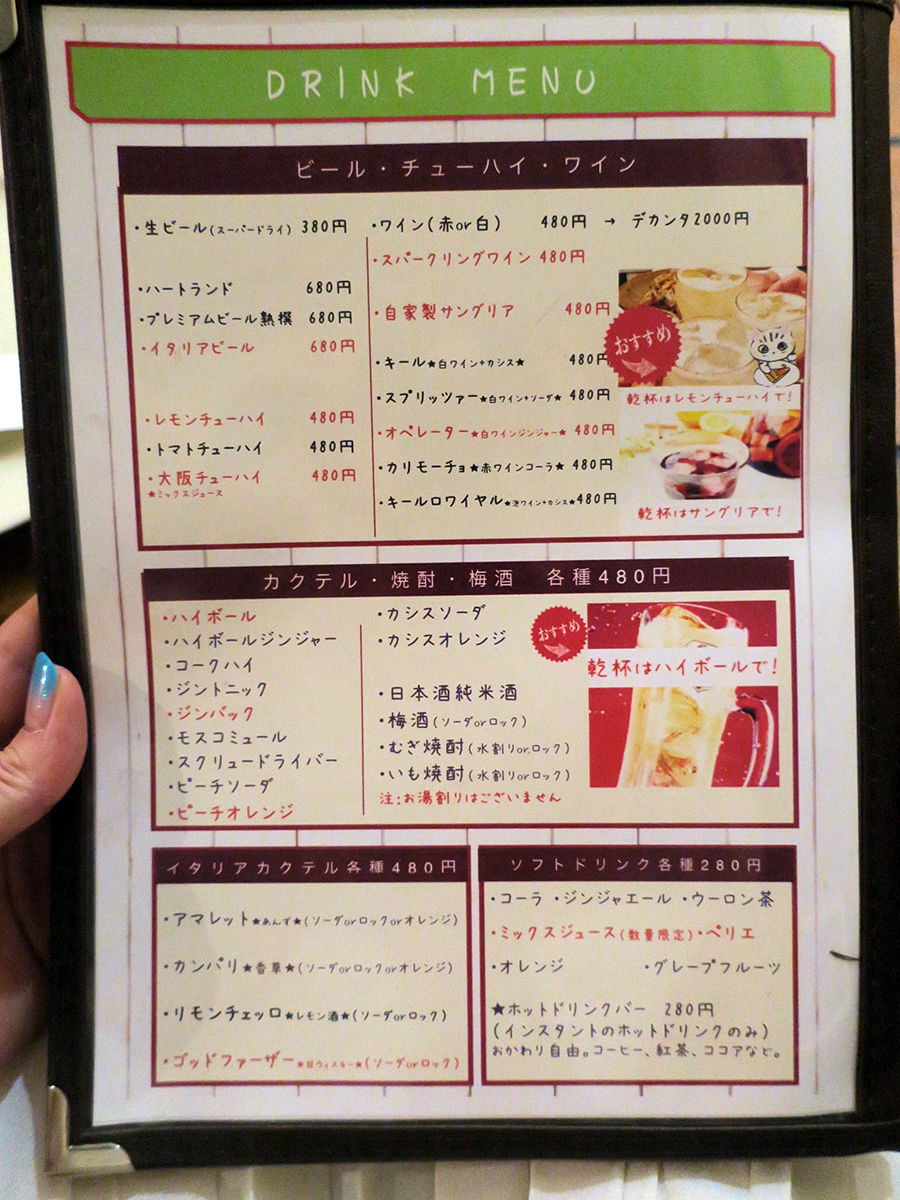 DRINK MENU
ビール・チューハイ・ワイン
・生ビール(スーパードライ) 380円
・ハートランド 680円
・プレミアムビール熟撰 680円
・イタリアビール 680円
・レモンチューハイ 480円
・トマトチューハイ 480円
・大阪チューハイ 480円
★ミックスジュース
・ワイン(赤or白) 480円 → デカンタ2000円
・スパークリングワイン 480円
・自家製サングリア 480円
・キール★白ワイン+カシス★ 480円
・スプリッツァー★白ワイン+ソーダ★ 480円
・オペレーター★白ワインジンジャー★ 480円
・カリモーチョ★赤ワインコーラ★ 480円
・キールロワイヤル★泡ワイン+カシス★480円
おすすめ
乾杯はレモンチューハイで!
乾杯はサングリアで!
カクテル・焼酎・梅酒 各種480円
・ハイボール
・ハイボールジンジャー
・コークハイ
・ジントニック
・ジンバック
・モスコミュール
・スクリュードライバー
・ピーチソーダ
・ピーチオレンジ
・カシスソーダ
・カシスオレンジ
・日本酒純米酒
・梅酒(ソーダorロック)
・むぎ焼酎(水割りor.ロック)
・いも焼酎(水割りorロック)
注:お湯割りはございません
おすすめ
乾杯はハイボールで!
イタリアカクテル各種480円
・アマレット★あんず★(ソーダorロックorオレンジ)
・カンパリ★香草★(ソーダorロックorオレンジ)
・リモンチェッロ★レモン酒★(ソーダorロック)
・ゴッドファーザー★ウィスキー★(ソーダorロック)
ソフトドリンク各種280円
・コーラ ・ジンジャエール ・ウーロン茶
・ミックスジュース(数量限定)・ペリエ
・オレンジ ・グレープフルーツ
★ホットドリンクバー 280円
(インスタントのホットドリンクのみ)
おかわり自由。コーヒー、紅茶、ココアなど。